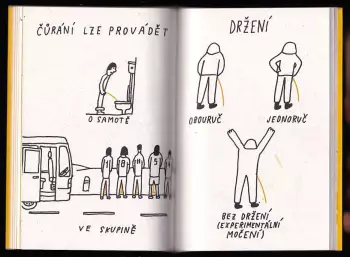 ČŮRÁNÍ LZE PROVÁDĚT
O SAMOTĚ
VE SKUPINĚ
DRŽENÍ
OBOURUČ
JEDNORUČ
BEZ DRŽENÍ
(EXPERIMENTÁLNÍ
MOČENÍ)